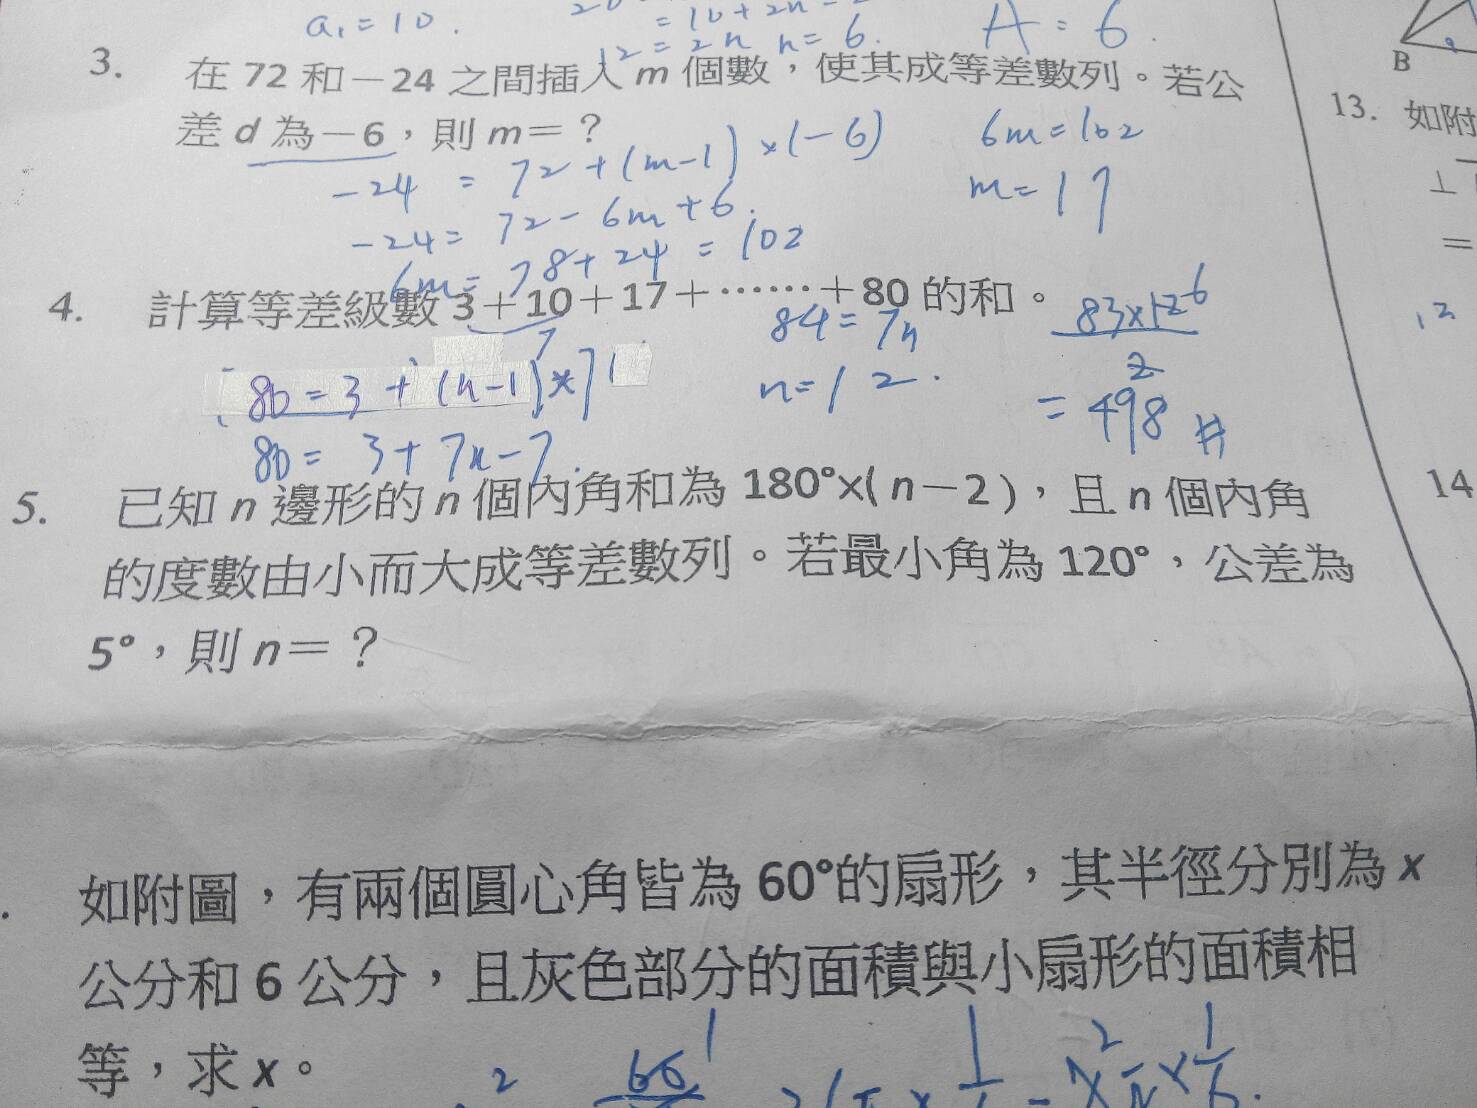 a₁=10.
=10+2n-2
12=2n n=6.
A=6.
3. 在 72 和－24 之間插入 m 個數，使其成等差數列。若公
差 d 為－6，則 m＝？
-24 = 72+(m-1)×(-6)
-24= 72-6m+6.
6m= 78+24 = 102
6m=102
m=17
4. 計算等差級數 3＋10＋17＋……＋80 的和。
7
80=3+(n-1)×7
80= 3+7n-7.
84=7n
n=12.
83×12 6
2
=498 #
5. 已知 n 邊形的 n 個內角和為 180°×( n－2 )，且 n 個內角
的度數由小而大成等差數列。若最小角為 120°，公差為
5°，則 n＝？
如附圖，有兩個圓心角皆為 60°的扇形，其半徑分別為 x
公分和 6 公分，且灰色部分的面積與小扇形的面積相
等，求 x。
B
13. 如附
⊥
=
12
14